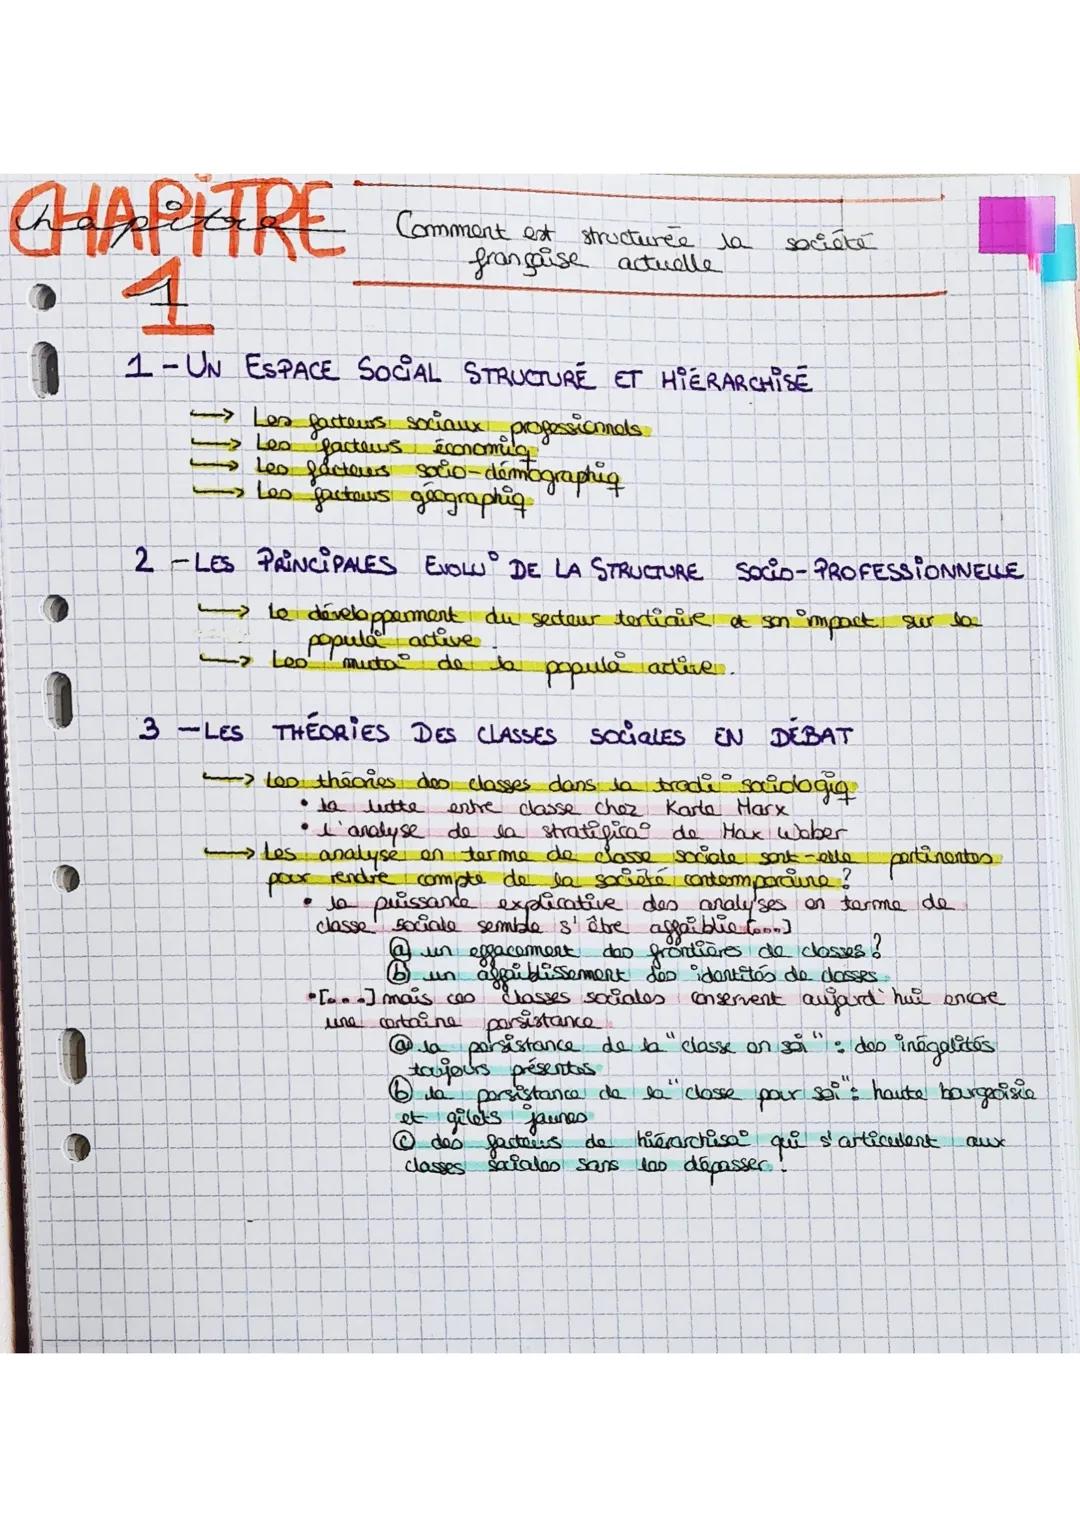 CHAPITRE
chapitre
1
Comment est structurée la société
française actuelle
1 - UN ESPACE SOCIAL STRUCTURÉ ET HIÉRARCHISÉ
→ Les facteurs sociaux professionnels
→ Les facteurs économiq
→ Les facteurs socio-démographiq
→ Les facteurs géographiq
2 - LES PRINCIPALES EVOLU° DE LA STRUCTURE SOCIO-PROFESSIONNELLE
→ Le développement du secteur tertiaire et son impact sur la
popula° active.
→ Les muta° de la popula° active.
3 - LES THÉORIES DES CLASSES SOCIALES EN DÉBAT
→ Les théories des classes dans la tradi° sociologiq
• la lutte entre classe chez Karle Marx
• l'analyse de la stratifica° de Max Waber
→ Les analyse en terme de classe sociale sont-elle pertinentes
pour rendre compte de la société contemporaine ?
• la puissance explicative des analyses en terme de
classe sociale semble s'être affaiblie [...]
ⓐ un effacement des frontières de classes ?
ⓑ un affaiblissement des identités de classes
• [...] mais ces classes sociales conservent aujourd'hui encore
une certaine persistance
ⓐ la persistance de la "classe en soi" : des inégalités
toujours présentes
ⓑ la persistance de la "classe pour soi" : haute bourgeoisie
et gilets jaunes
ⓒ des facteurs de hiérarchisa° qui s'articulent aux
classes sociales sans les dépasser !